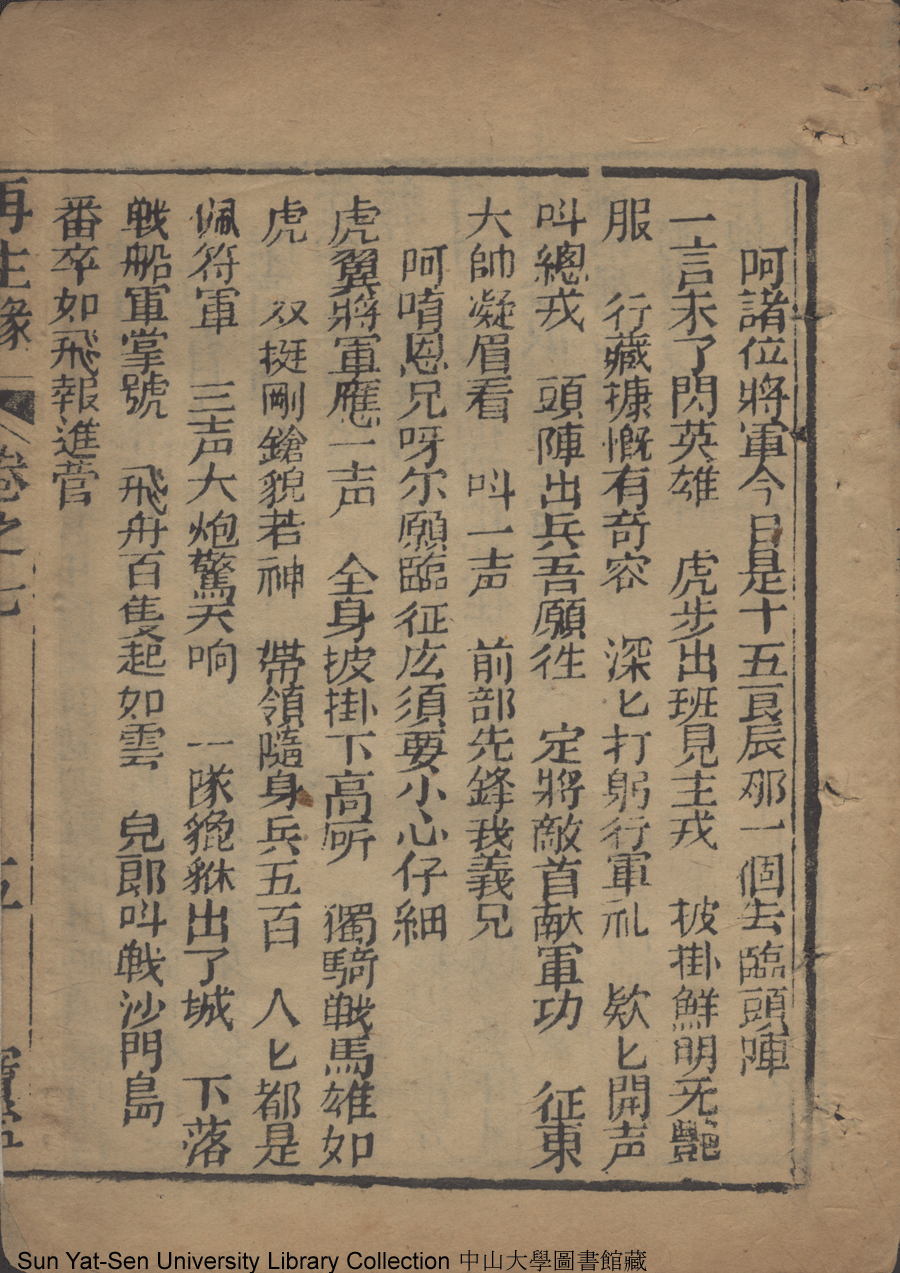 阿諸位將軍今日是十五良辰那一個去臨頭陣
一言未了閃英雄　虎步出班見主戎　披掛鮮明无艷
服　行藏慷慨有奇容　深匕打躬行軍礼　欵匕開声
呌總戎　頭陣出兵吾願徃　定將敵首献軍功　征東
大帥凝眉看　呌一声　前部先鋒我義兄
阿唷恩兄呀尔願臨征庅須要小心仔細
虎翼將軍應一声　全身披掛下高所　獨騎戦馬雄如
虎　双挺剛鎗貌若神　帶領隨身兵五百　人匕都是
佩符軍　三声大炮驚天响　一隊貔貅出了城　下落
戦船軍掌號　飛舟百隻起如雲　兒郎呌戦沙門島
番卒如飛報進营
再生緣　卷之七　五
Sun Yat-Sen University Library Collection 中山大學圖書館藏